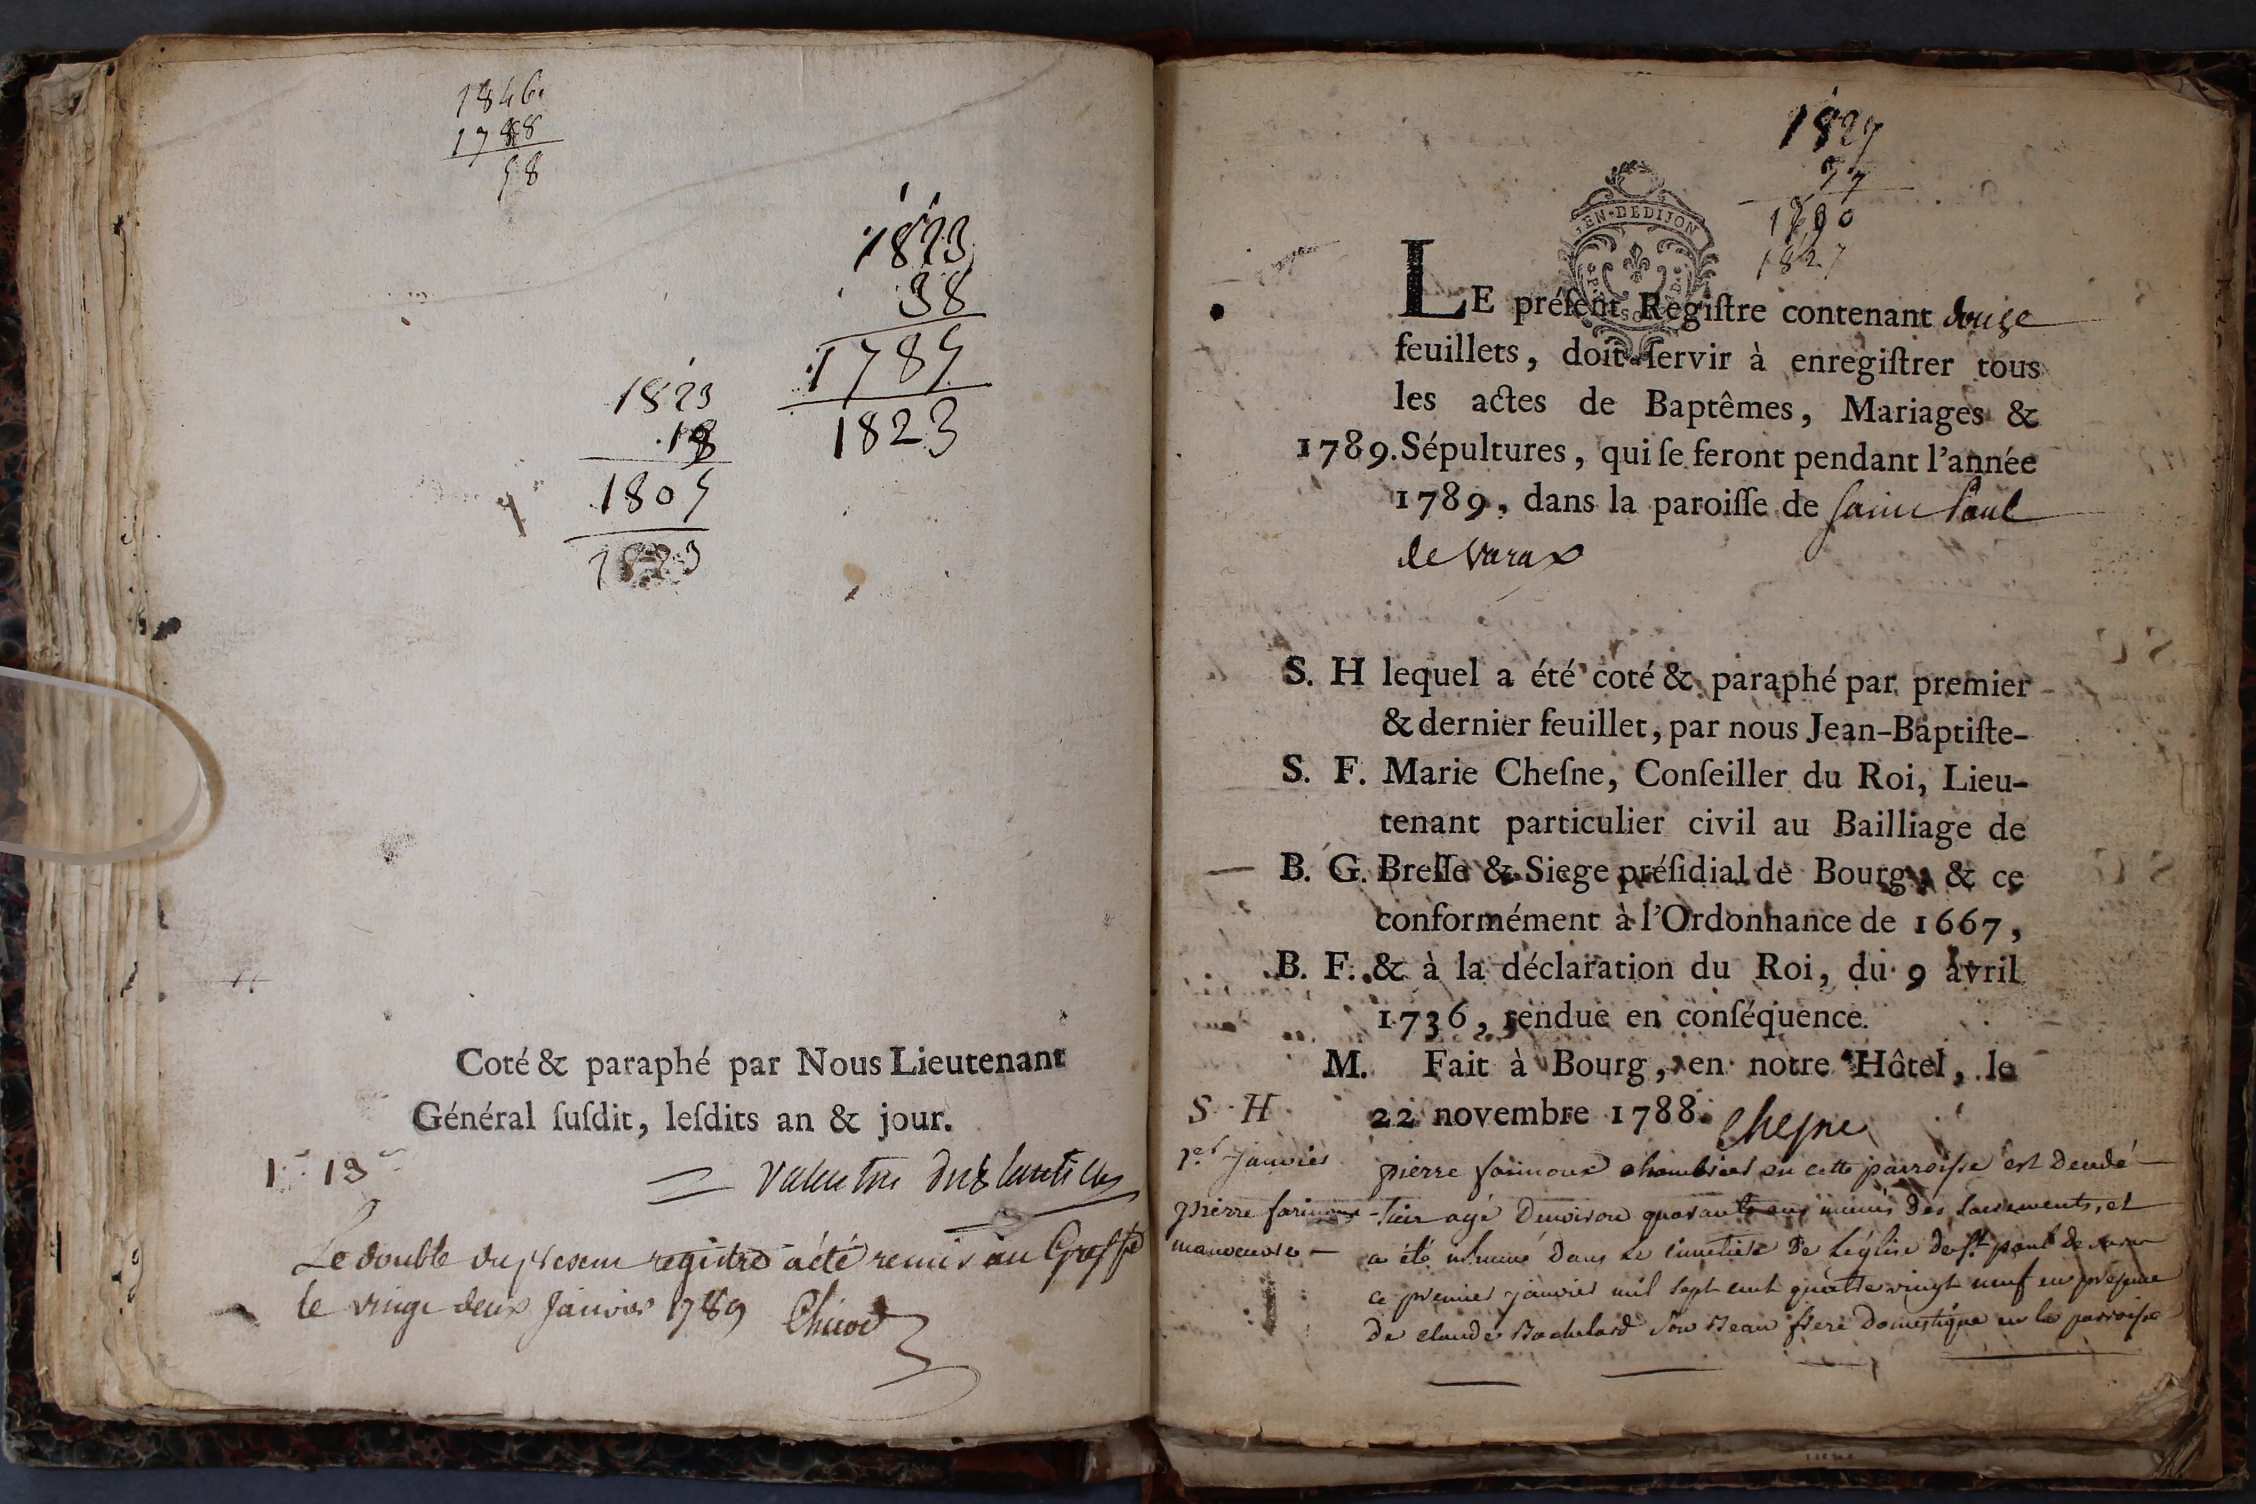 1846
1788
58
1823
38
1785
1823
1823
18
1805
1823
Coté & paraphé par Nous Lieutenant
Général ſuſdit, leſdits an & jour.
1 13
Le double du preſent regiſtre a été remis au Greffe
le vingt deux Janvier 1789
1827
37
1790
1827
EN·DEDIJON
LE préſent Regiſtre contenant douze
feuillets, doit ſervir à enregiſtrer tous
les actes de Baptêmes, Mariages &
1789. Sépultures, qui ſe feront pendant l'année
1789, dans la paroiſſe de Saint Paul
de Varax
S. H lequel a été coté & paraphé par premier
& dernier feuillet, par nous Jean-Baptiſte-
S. F. Marie Cheſne, Conſeiller du Roi, Lieu-
tenant particulier civil au Bailliage de
B. G. Breſſe & Siege préſidial de Bourg, & ce
conformément à l'Ordonnance de 1667,
B. F. & à la déclaration du Roi, du 9 avril
1736, rendue en conſéquence.
M. Fait à Bourg, en notre Hôtel, le
22 novembre 1788. Cheſne
S. H
1er Janvier
pierre farinoux
manoeuvre
pierre farinoux en cette parroiſſe est decedé
hier agé denviron quarante ans munis des sacrements, et
a été inhumé dans le cimetiere de l'égliſe de St paul de varax
ce premier janvier mil sept cent quatre vingt neuf en preſence
de claude Bachelard son Beau frere domestique en la parroiſſe